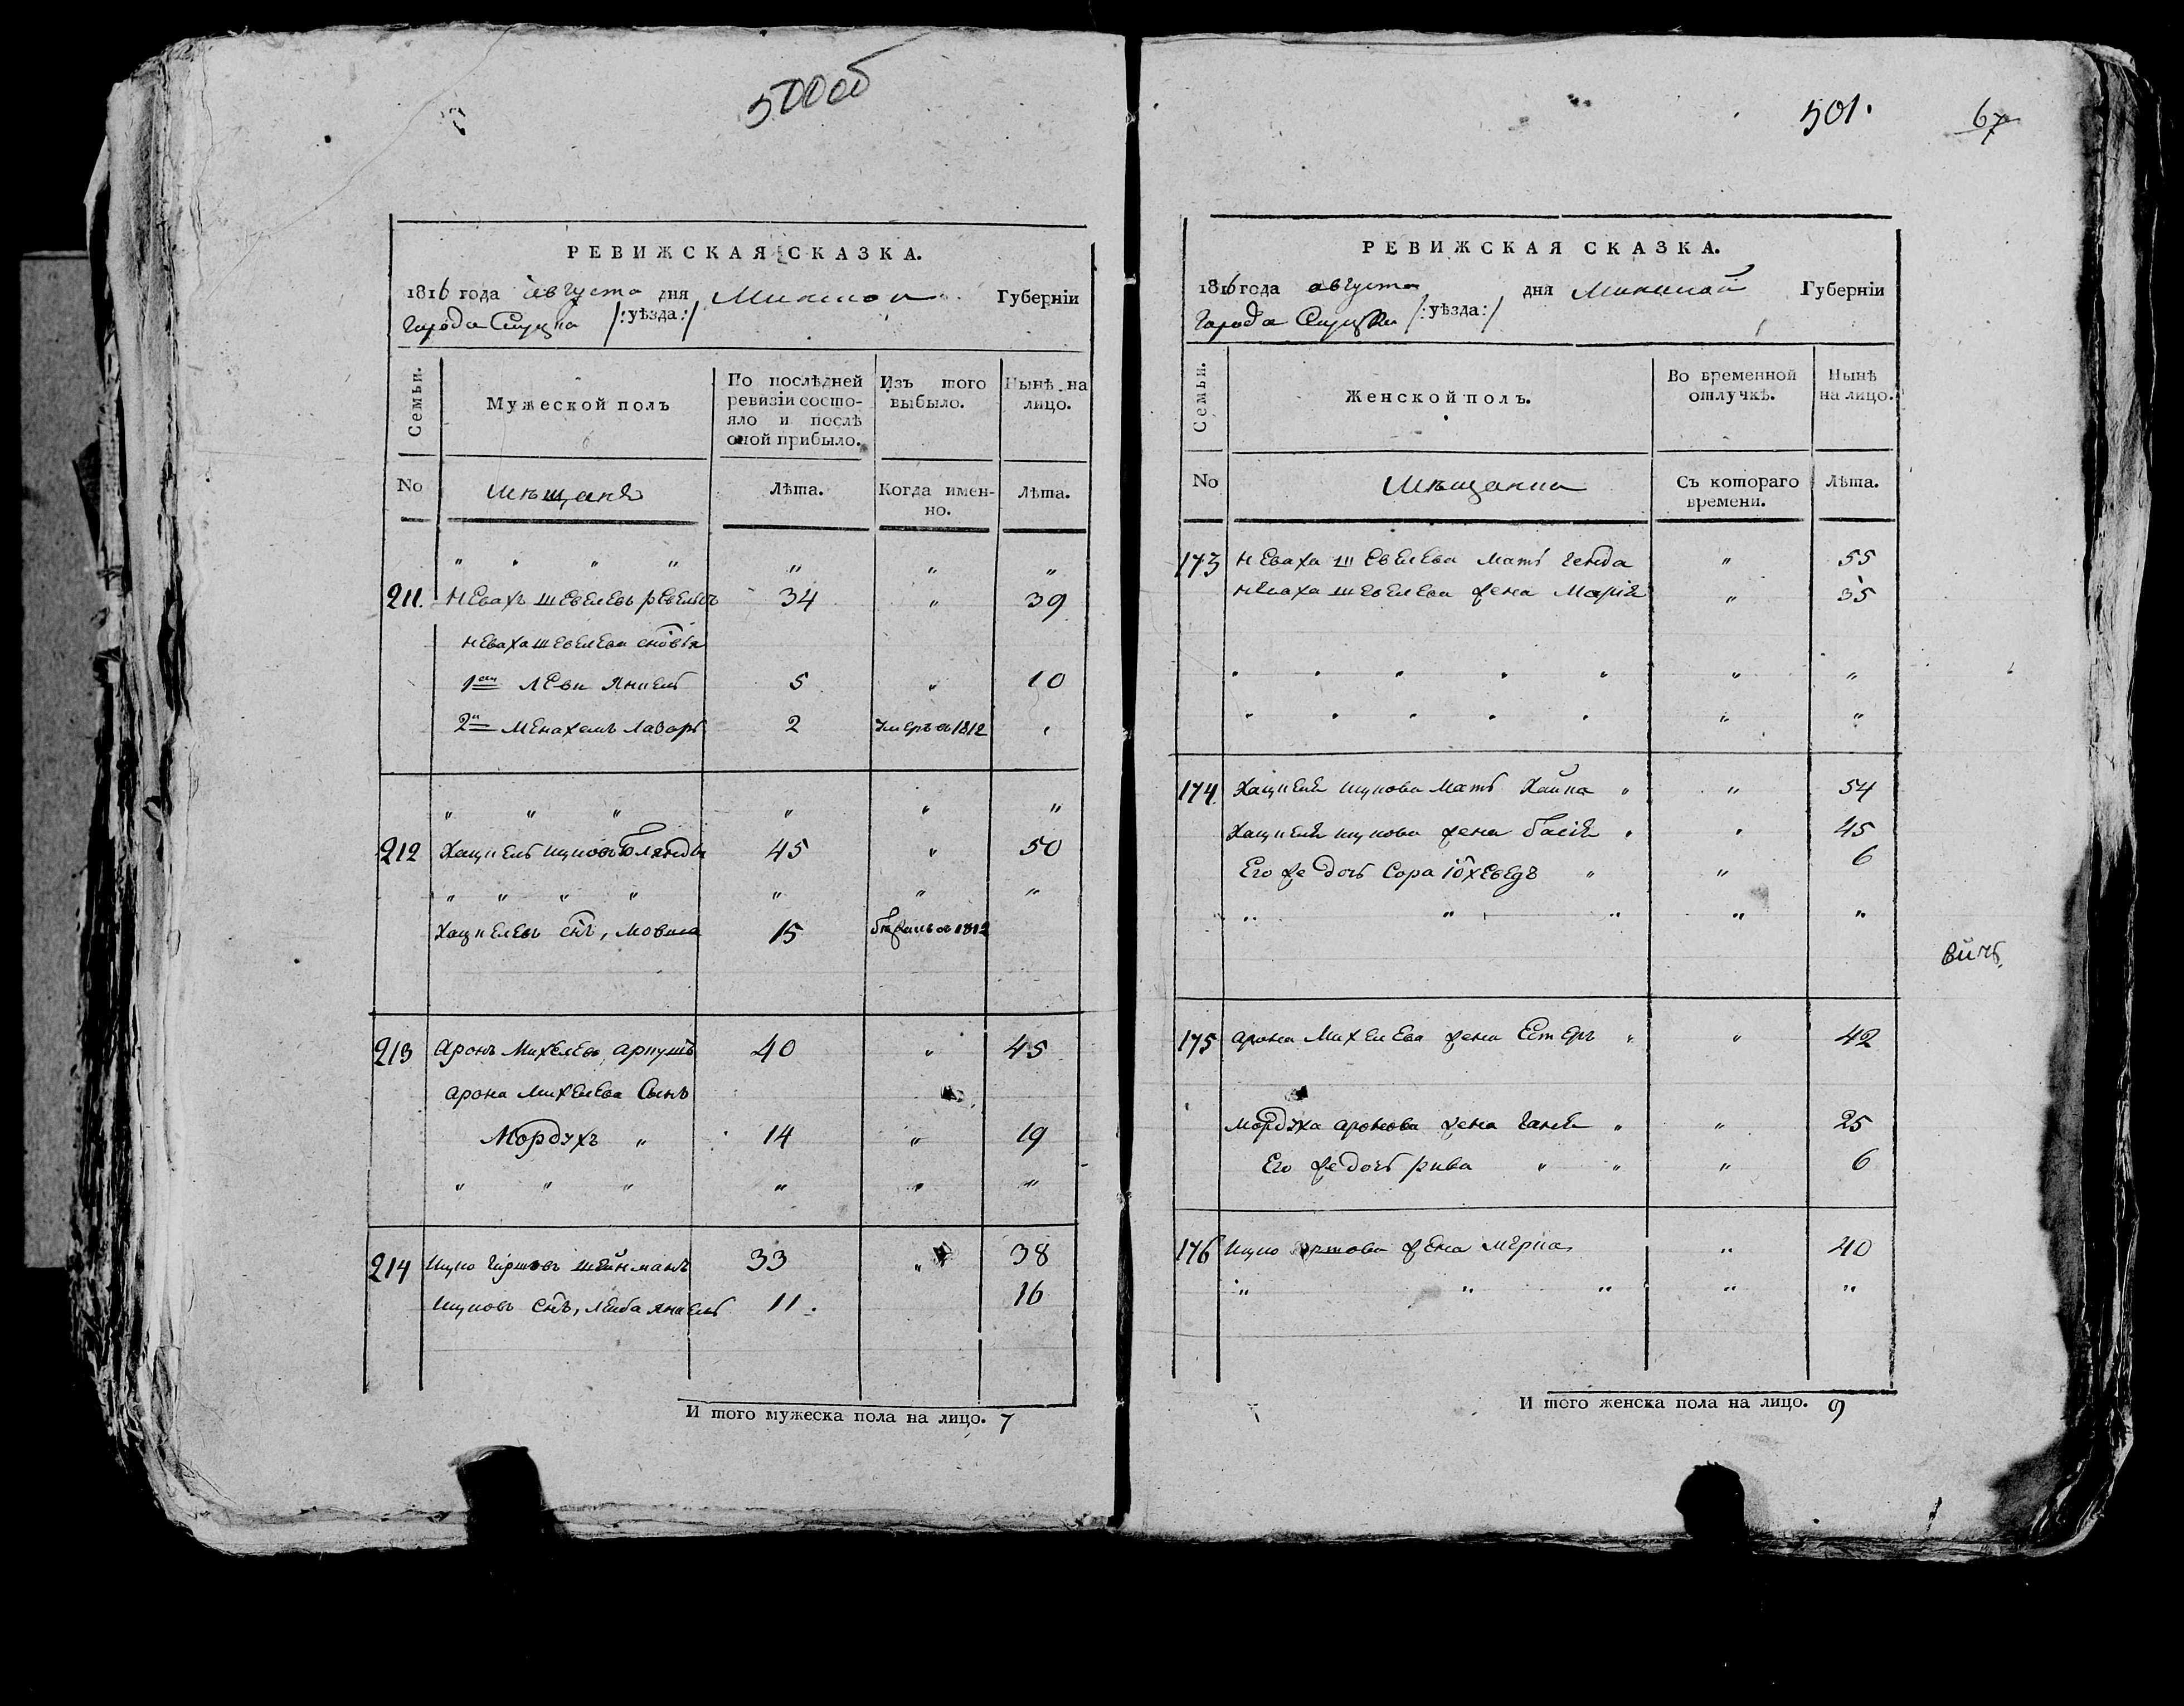 500об
РЕВИЖСКАЯ СКАЗКА.
1816 года августа дня Минской Губерніи
города Слуцка /:уѣзда:/
Семьи.
Мужеской полъ
По послѣдней ревизіи состояло и послѣ оной прибыло.
Изъ того выбыло.
Нынѣ на лицо.
No
мѣщане
Лѣта.
Когда именно.
Лѣта.
" " " " " " "
211. Невахъ Шевелевъ 34 " 39
Неваха Шевелева
1ой Леви Янкель 5 " 10
2й Менахемъ Лазарь 2 умеръ въ 1812 "
" " " " " "
212 Хацкель Ицковъ 45 " 50
" " " " " " "
Хацкелевъ снъ, Мовша 15 въ 1812
213 Аронъ Михелевъ 40 " 45
Арона Михелева Сынъ
Мордухъ " 14 " 19
" " " " " "
214 Ицко Гиршовъ Шейнманъ 33 " 38
Ицковъ снъ, Лейба Янкель 11. 16
И того мужеска пола на лицо. 7
501.
67
РЕВИЖСКАЯ СКАЗКА.
1816 года августа дня Минской Губерніи
города Слуцка /:уѣзда:/
Семьи.
Женской полъ.
Во временной отлучкѣ.
Нынѣ на лицо.
No
мѣщанки
Съ котораго времени.
Лѣта.
173 Неваха Шевелева мать " 55
Неваха Шевелева жена " 35
" " " " " " "
" " " " " " "
174 Хацкеля Ицкова мать Хайка " " 54
Хацкеля Ицкова жена Бася " " 45
Его же дочь Сора Іохеведъ " " 6
" " " " "
вичъ.
175 Арона Михелева жена Естеръ " " 42
Мордуха Аронова жена Ганя " " 25
Его же дочь Рива " " " 6
176 Ицко жена Мерка " 40
" " " " "
И того женска пола на лицо. 9